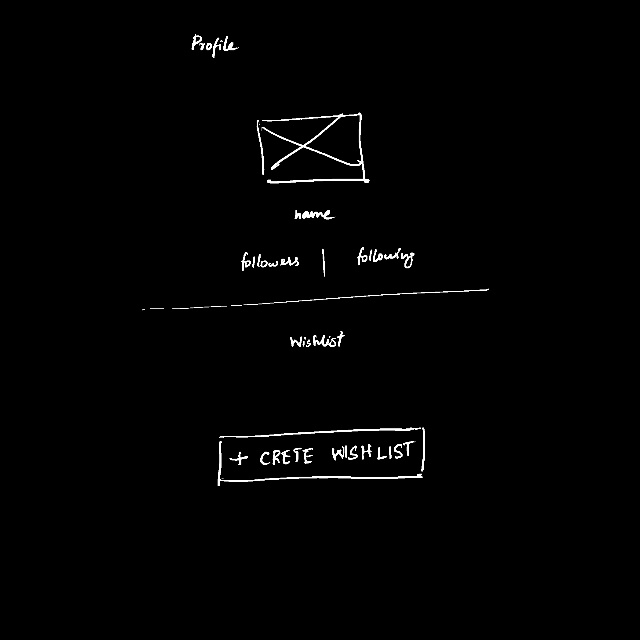 Profile
name
followers | following
Wishlist
+ CRETE WISHLIST